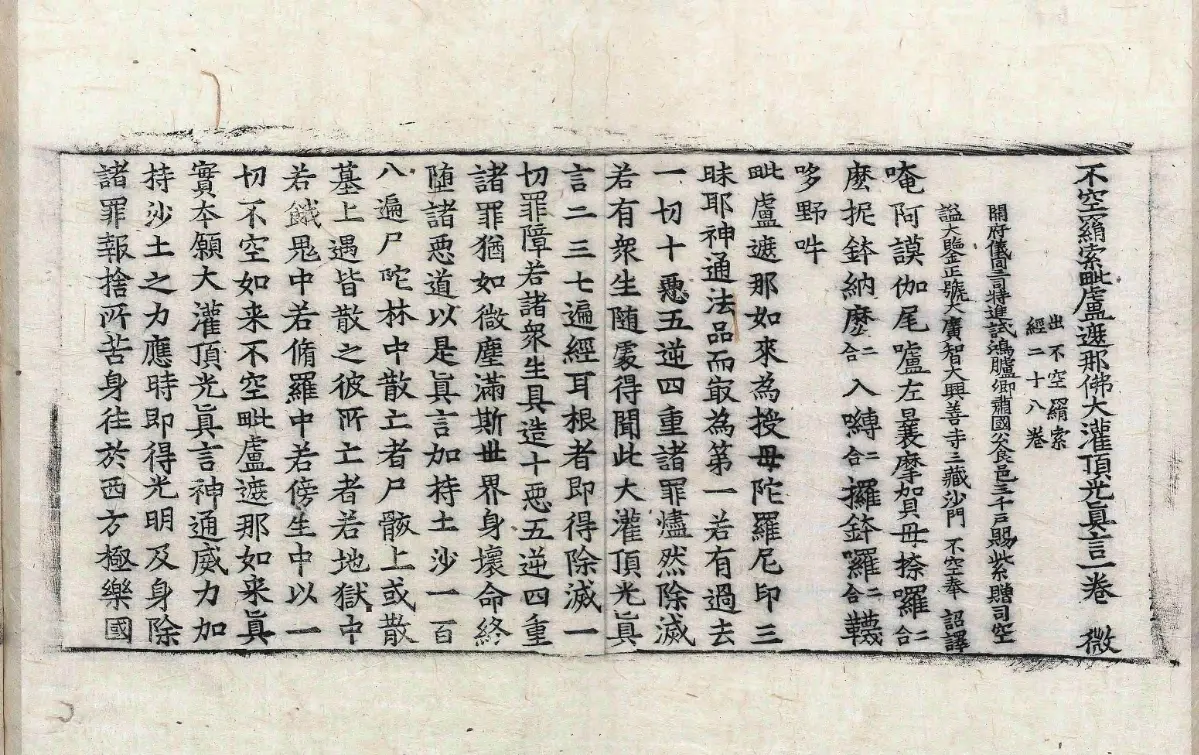 不空羂索毗盧遮那佛大灌頂光眞言一卷　微
出不空羂索
經二十八卷
開府儀同三司特進試鴻臚卿肅國公食邑三千戶賜紫贈司空
謚大鑒正號大廣智大興善寺三藏沙門不空奉　詔譯
唵阿謨伽尾嚧左曩摩賀母捺囉二合
麽抳鉢納麽二合入嚩二合攞鉢囉二合韈
哆野吽
毗盧遮那如來為授母陀羅尼印三
昧耶神通法品而最為第一若有過去
一切十惡五逆四重諸罪燼然除滅
若有衆生随處得聞此大灌頂光眞
言二三七遍經耳根者即得除滅一
切罪障若諸衆生具造十惡五逆四重
諸罪猶如微塵滿斯世界身壞命終
随諸惡道以是眞言加持土沙一百
八遍尸陀林中散亡者尸骸上或散
墓上遇皆散之彼所亡者若地獄中
若餓鬼中若脩羅中若傍生中以一
切不空如来不空毗盧遮那如来眞
實夲願大灌頂光眞言神通威力加
持沙土之力應時即得光明及身除
諸罪報捨所苦身往於西方極樂國